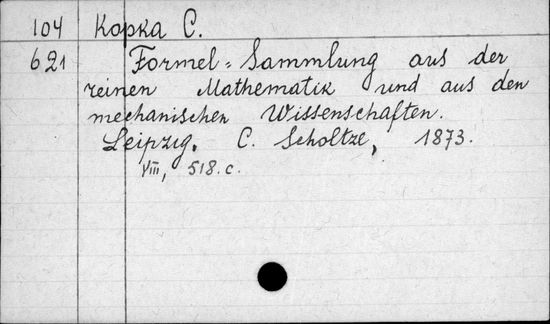 104 Kopka C.
621 Formel-Sammlung aus der
reinen Mathematik und aus den
mechanischen Wissenschaften.
Leipzig. C. Scholtze, 1873.
VIII, 518. c.